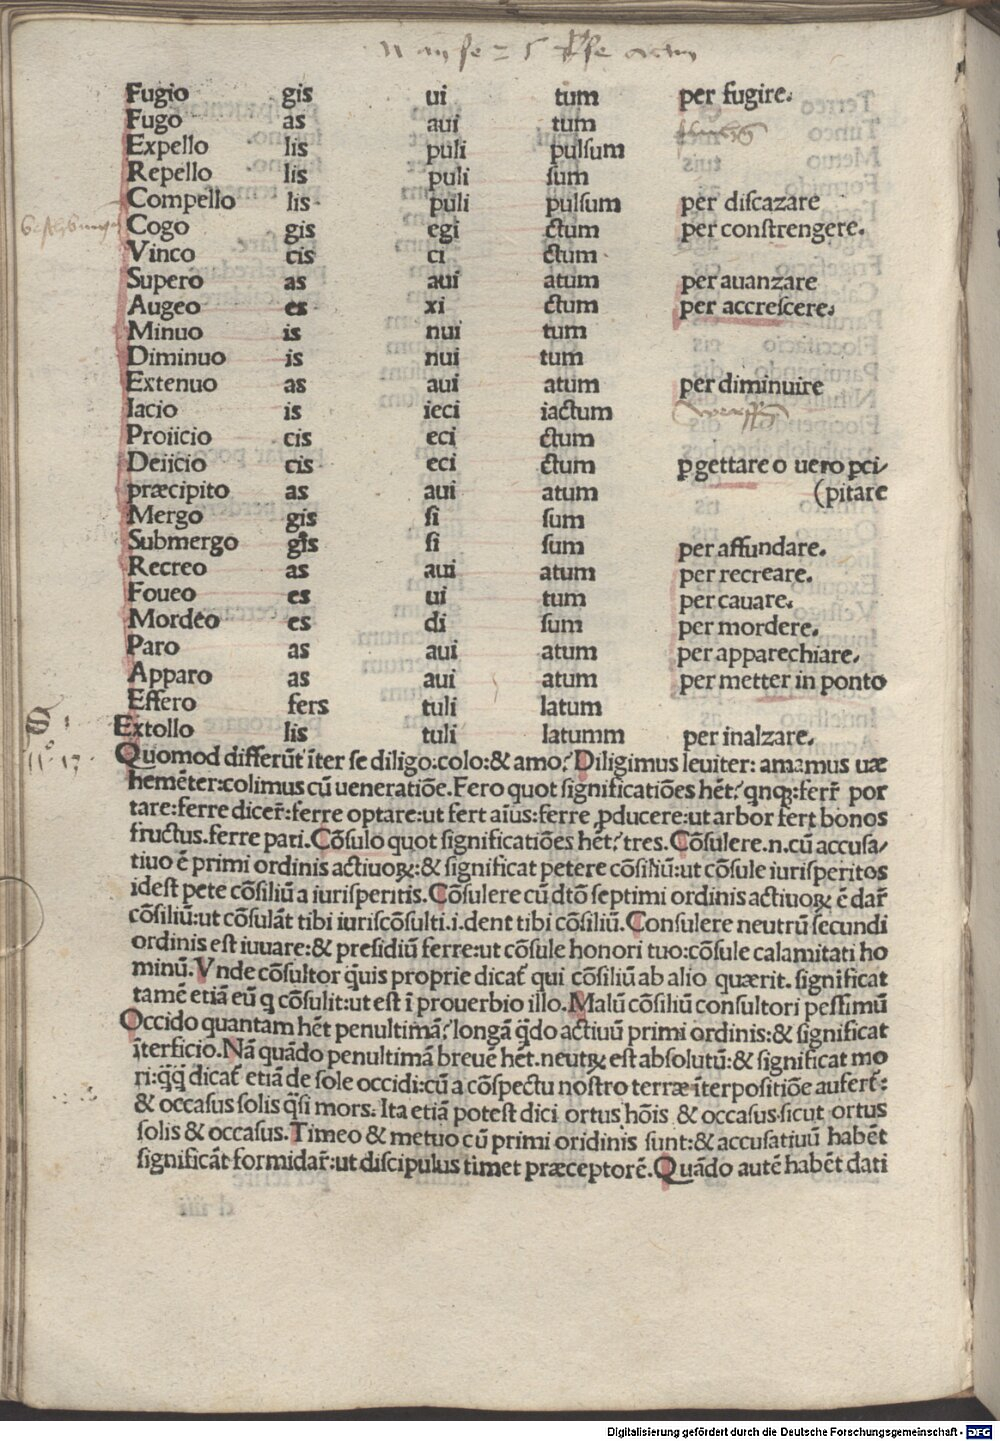 Fugio gis ui tum per fugire.
Fugo as aui tum
Expello lis puli pulſum
Repello lis puli ſum
Compello lis puli pulſum per diſcazare
Cogo gis egi ctum per conſtrengere.
Vinco cis ci ctum
Supero as aui atum per auanzare
Augeo es xi ctum per accreſcere.
Minuo is nui tum
Diminuo is nui tum
Extenuo as aui atum per diminuire
Iacio is ieci iactum
Proiicio cis eci ctum
Deiicio cis eci ctum ꝑ gettare o uero p̃ci/
præcipito as aui atum (pitare
Mergo gis ſi ſum
Submergo gis ſi ſum per affundare.
Recreo as aui atum per recreare.
Foueo es ui tum per cauare.
Mordeo es di ſum per mordere.
Paro as aui atum per apparechiare.
Apparo as aui atum per metter in ponto
Effero fers tuli latum
Extollo lis tuli latumm per inalzare.
Quomod differũt ĩter ſe diligo:colo:& amo? Diligimus leuiter: amamus uæ
hemẽter:colimus cũ ueneratiõe.Fero quot ſignificatiões hẽt? qnqꝫ:ferr̃ por
tare:ferre dicer̃:ferre optare:ut fert aĩus:ferre ꝓducere:ut arbor fert bonos
fructus.ferre pati.Cõſulo quot ſignificatiões hẽt? tres.Cõſulere.n.cũ accuſa/
tiuo ẽ primi ordinis actiuoꝝ:& ſignificat petere cõſiliũ:ut cõſule iuriſperitos
ideſt pete cõſiliũ a iuriſperitis.Cõſulere cũ dtõ ſeptimi ordinis actiuoꝝ ẽ dar̃
cõſiliũ:ut cõſulãt tibi iuriſcõſulti.i.dent tibi cõſiliũ.Conſulere neutrũ ſecundi
ordinis eſt iuuare:& preſidiũ ferre:ut cõſule honori tuo:cõſule calamitati ho
minũ.Vnde cõſultor q̃uis proprie dicat̃ qui cõſiliũ ab alio quærit.ſignificat
tamẽ etiã eũ q cõſulit:ut eſt ĩ prouerbio illo.Malũ cõſiliũ conſultori peſſimũ
Occido quantam hẽt penultimã? longã q̃do actiuũ primi ordinis:& ſignificat
ĩterficio.Nã quãdo penultimã breuẽ hẽt.neutꝝ eſt abſolutũ:& ſignificat mo
ri:q̃q̃ dicat̃ etiã de ſole occidi:cũ a cõſpectu noſtro terræ ĩterpoſitiõe aufert̃:
& occaſus ſolis q̃ſi mors.Ita etiã poteſt dici ortus hõis & occaſus.ſicut ortus
ſolis & occaſus.Timeo & metuo cũ primi oridinis ſunt:& accuſatiuũ habẽt
ſignificãt formidar̃:ut diſcipulus timet præceptorẽ.Quãdo autẽ habẽt dati
Digitalisierung gefördert durch die Deutsche Forschungsgemeinschaft - DFG